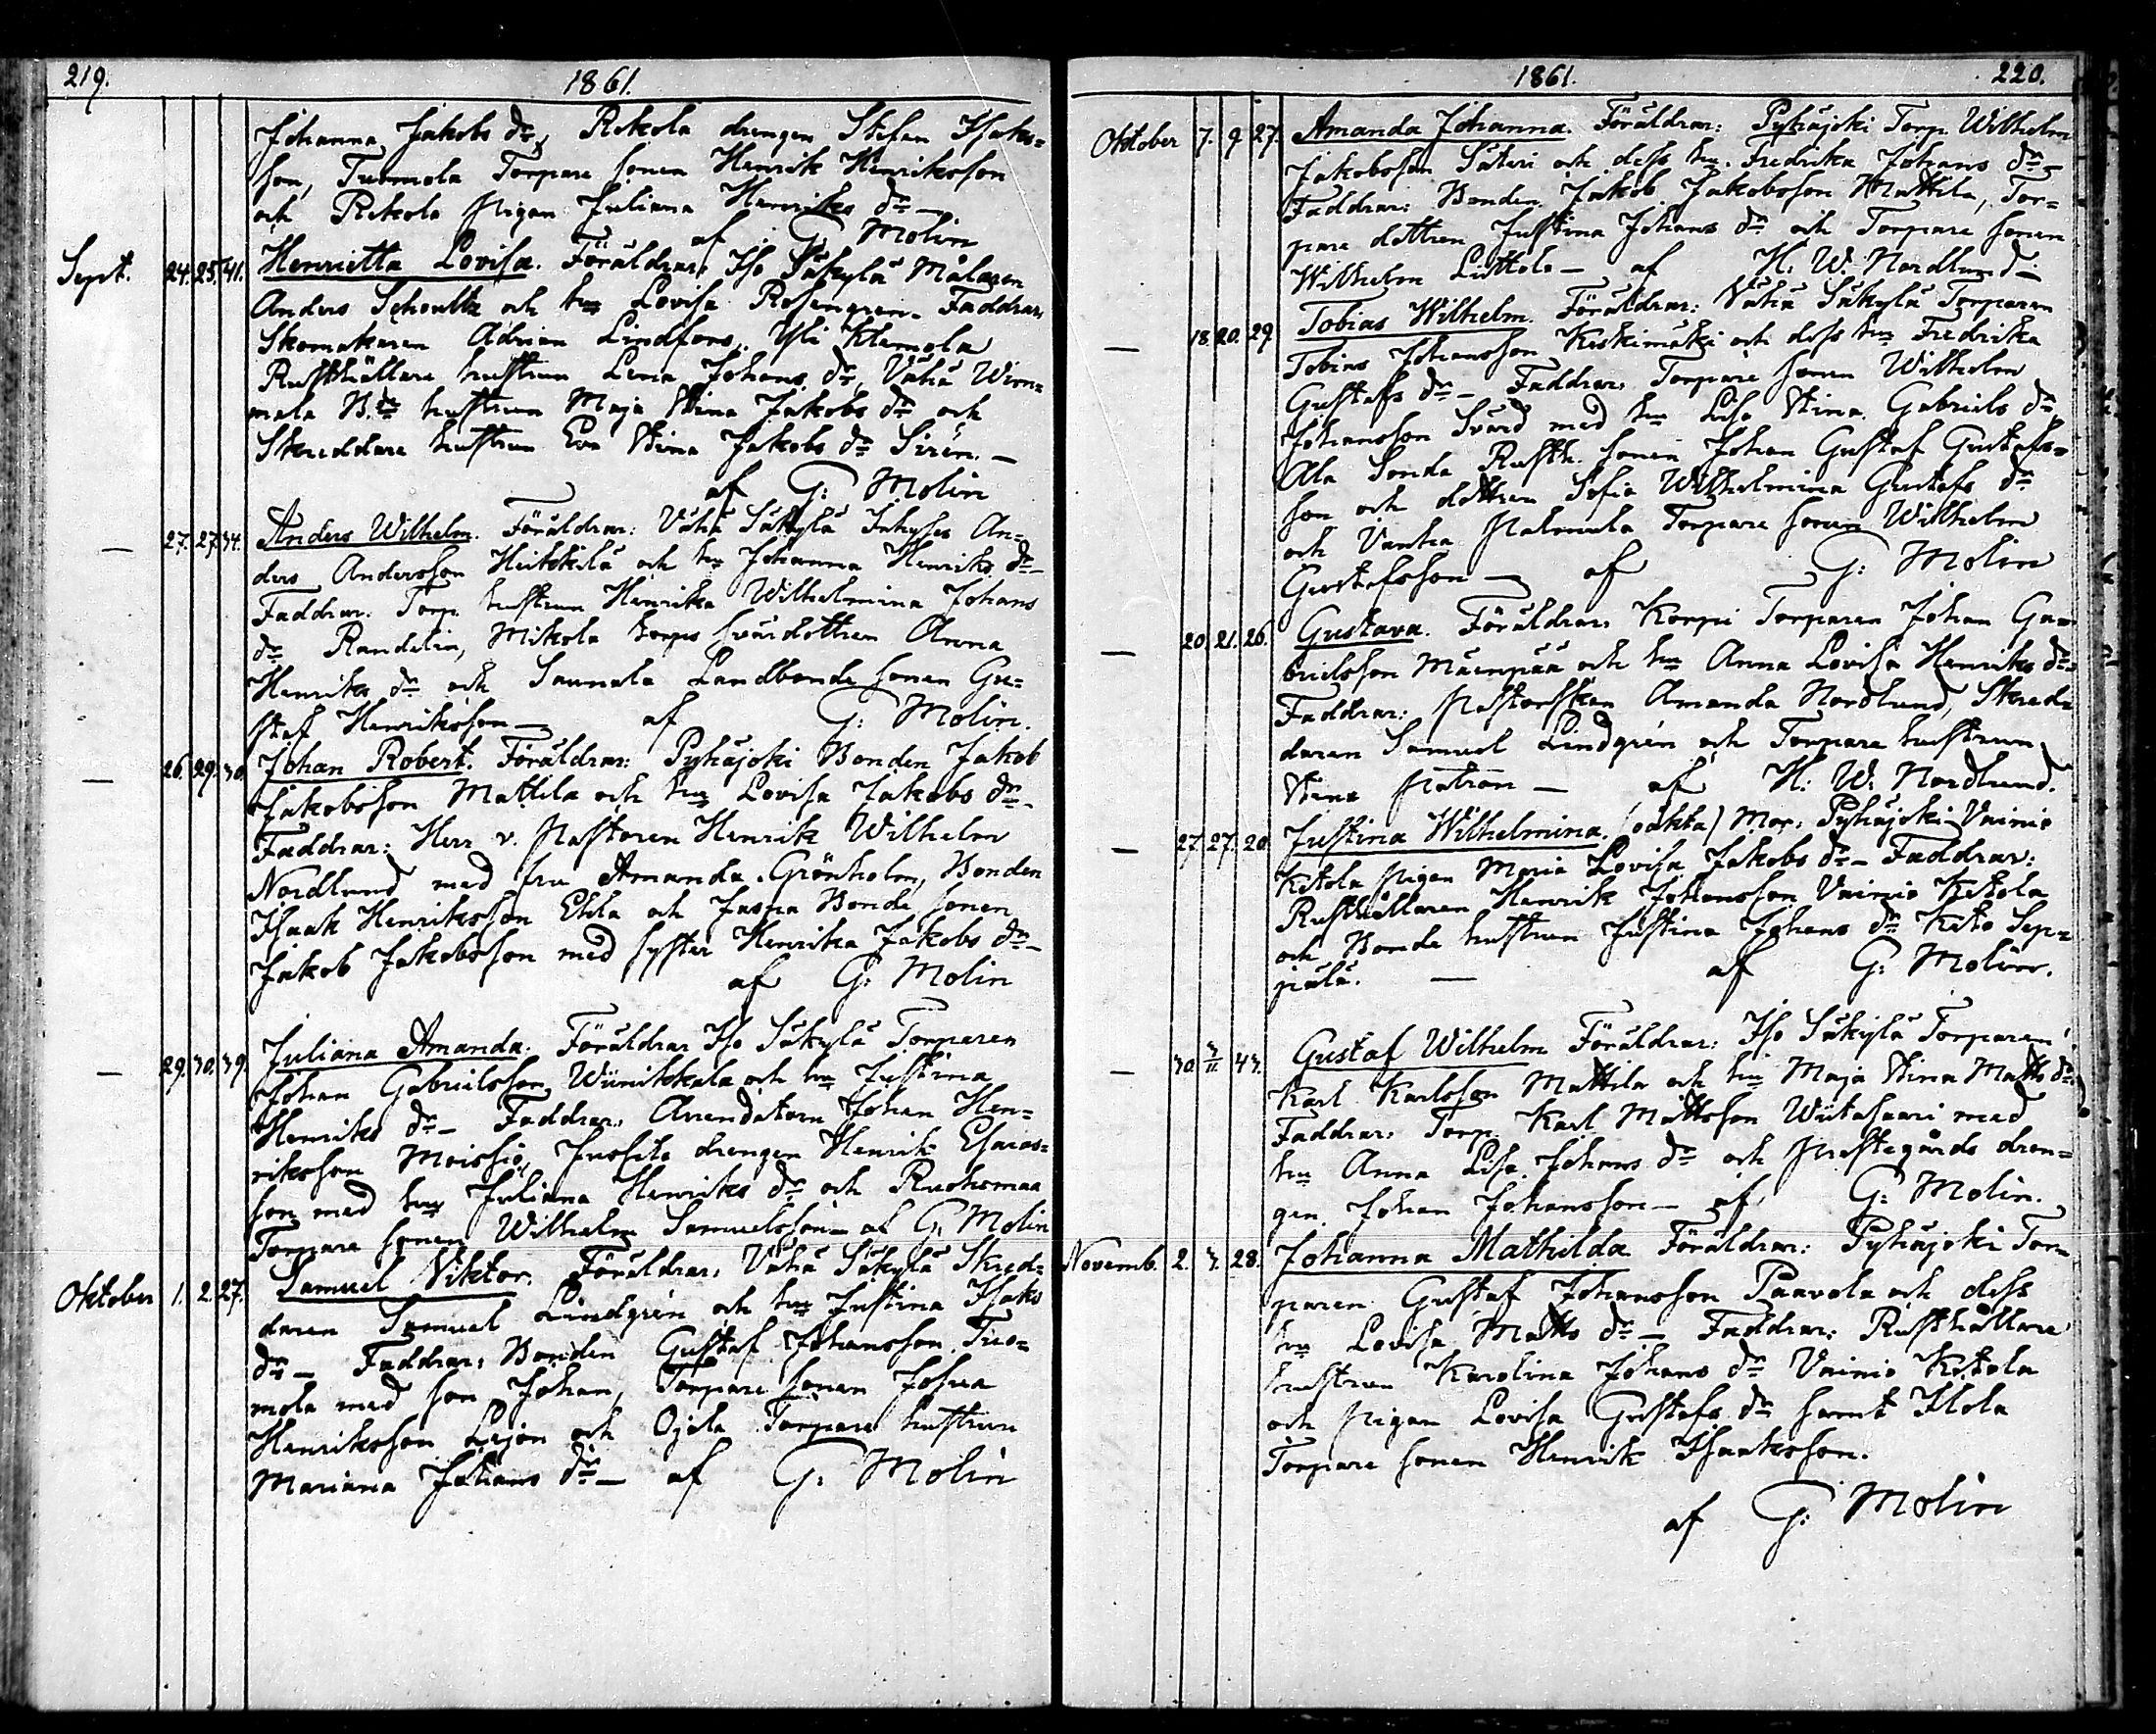 219. 1861.
Johanna Jakobs dr, Rekola drengen Stefan Isaks=
son, Tuomola Torpare sonen Henrik Henriksson
och Rekola pigan Juliana Henriks dr —
af G: Molin
Sept. 24. 25. 41. Henrietta Lovisa. Föräldrar: Iso Säkylä Målaren
Anders Schoultz och hu Lovisa Rosengren. Faddrar,
Skomakaren Adrian Lindfors, Yli Klemola
Rusthållare hustrun Lena Johans dr, Vähä Wirn=
mala B.de hustrun Maja Stina Jakobs dr och
Skreddare hustrun Eva Stina Jakobs dr Sirén. —
af G: Molin
— 27. 27. 34. Anders Wilhelm. Föräldrar: Vähä Säkylä Inhyses An=
ders Andersson Heikkilä och hu Johanna Henriks dr —
Faddrar. Torp. hustrun Henrika Wilhelmina Johans
dr Randelin, Mikola torps svärdottren Anna
Henriks dr och Saunala Landbonde sonen Gu=
staf Henriksson — af G: Molin.
— 26. 29. 30. Johan Robert. Föräldrar: Pyhäjoki Bonden Jakob
Jakobsson Mattila och hu Lovisa Jakobs dr —
Faddrar: Herr v. Pastoren Henrik Wilhelm
Nordlund med fru Amanda Grönholm, Bonden
Isaak Henriksson Eskla och Jaspa Bonde sonen
Jakob Jakobsson med syster Henrika Jakobs dr —
af G: Molin
— 29. 30. 39. Juliana Amanda. Föräldrar Iso Säkylä Torparen
Johan Gabrielsson Wiinikkala och hu Justina
Henriks dr — Faddrar: Arrendatorn Johan Hen=
riksson Moissio, Jusila drengen Henrik Esaias=
son med hu Juliana Henriks dr och Ruohomaa
Torpare sonen Wilhelm Samuelsson — af G: Molin
Oktober 1. 2. 27. Samuel Viktor. Föräldrar: Vähä Säkylä Skred=
daren Samuel Lindgrén och hu Justina Isaks
dr — Faddrar: Bonden Gustaf Johansson Tuo=
mola med son Johan, Torpare sonen Josua
Henriksson Lejon och Ojela Torpare hustrun
Mariana Johans dr — af G: Molin
1861. 220.
Oktober 7. 9. 27. Amanda Johanna. Föräldrar: Pyhäjoki Torp. Wilhelm
Jakobsson Säteri och dess hu. Fredrika Johans dr —
Faddrar: Bonden Jakob Jakobsson Mattila, Tor=
pare dottren Justina Johans dr och Torpare sonen
Wilhelm Luttola — af H: W. Nordlund —
— 18. 20. 29. Tobias Wilhelm. Föräldrar: Vähä Säkylä Torparen
Tobias Johansson Keskimäki och dess hu Fredrika
Gustafs dr — Faddrar: Torpare sonen Wilhelm
Johansson Svärd med hu Lisa Stina Gabriels dr,
Ala Sonda Rusth. sonen Johan Gustaf Gustafs=
son och dottren Sofia Wilhelmina Gustafs dr
och Vanha Palmula Torpare sonen Wilhelm
Gustafsson — af G: Molin
— 20. 21. 26. Gustava. Föräldrar: Korpi Torparen Johan Ga=
brielsson Mäenpää och hu Anna Lovisa Henriks dr —
Faddrar: Pastorskan Amanda Nordlund, Skred=
daren Samuel Lindgrén och Torpare hustrun
Stina Patron — af H: W: Nordlund.
— 27. 27. 20. Justina Wilhelmina. (oäkta) Mor: Pyhäjoki Vainio
Ketola pigan Maria Lovisa Jakobs dr — Faddrar:
Rusthållaren Henrik Johansson Vainio Ketola
och Bonde hustrun Justina Johans dr Keto Sep=
pälä. — af G: Molin.
— 30. 3/11 43. Gustaf Wilhelm Föräldrar: Iso Säkylä Torparen
Karl Karlsson Mattila och hu Maja Stina Matts dr
Faddrar: Torp. Karl Mattsson Wiitasaari med
hu Anna Lisa Johans dr och Prestegårds dren=
gen Johan Johansson — af G: Molin.
Novemb. 2. 3. 28. Johanna Mathilda Föräldrar: Pyhäjoki Tor=
paren Gustaf Johansson Paavola och dess
hu Lovisa Matts dr — Faddrar: Rusthållare
hustrun Karolina Johans dr Vainio Ketola
och pigan Lovisa Gustafs dr samt Ilola
Torpare sonen Henrik Isaaksson.
af G: Molin